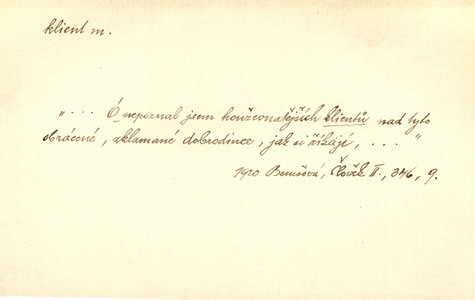 klient m.
„... Ó nepoznal jsem houževnatějších klientů nad tyto
obrácené, zklamané dobrodince, jak si říkají, ... "
1920 Benešová, Člověk II., 346, 9.